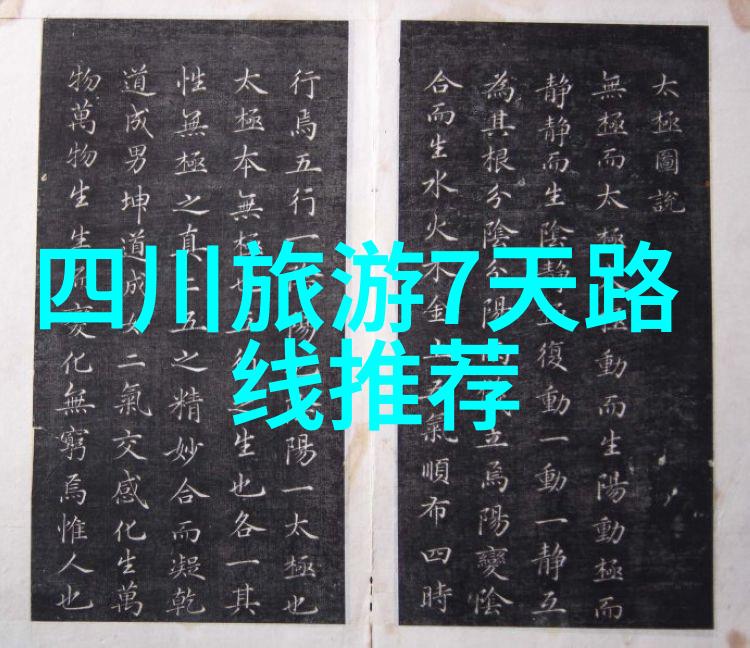 太極圖說
無極而太極極動而生陽動極而
靜靜而生陰靜復動一動一靜互
為其根分陰分陽立焉陽變陰
合而生水火木金氣順布四時
行焉五行一陽也陽一太極也
太極本無極也行之生也各一其
性無極之真二五之精妙合而凝乾
道成男坤道成女二氣交感化生萬
物萬物生生變化無窮焉惟人也
四川旅游7天路
线推荐